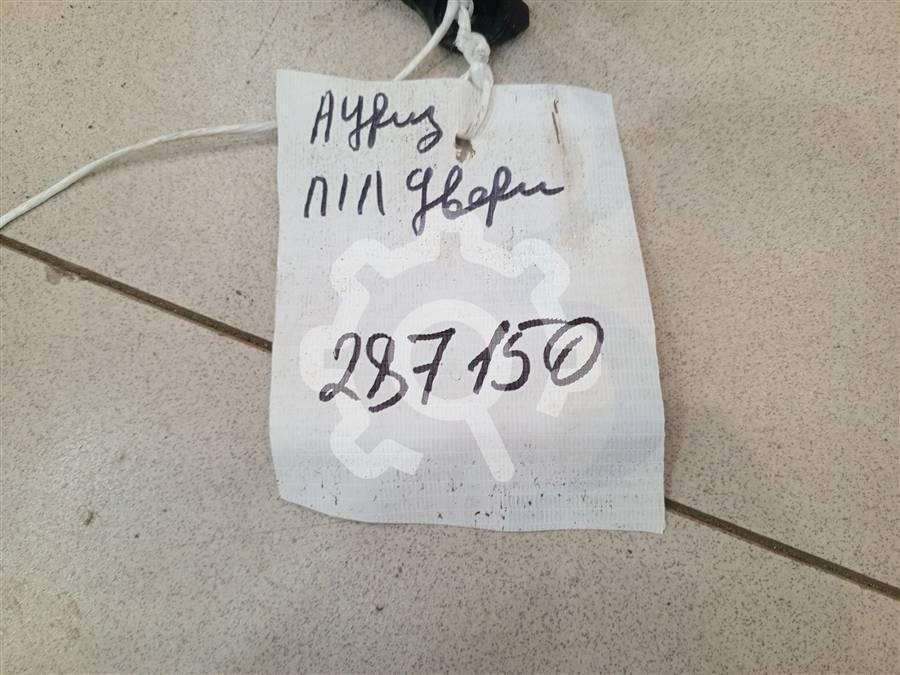 Аурис
П/П двери
287150